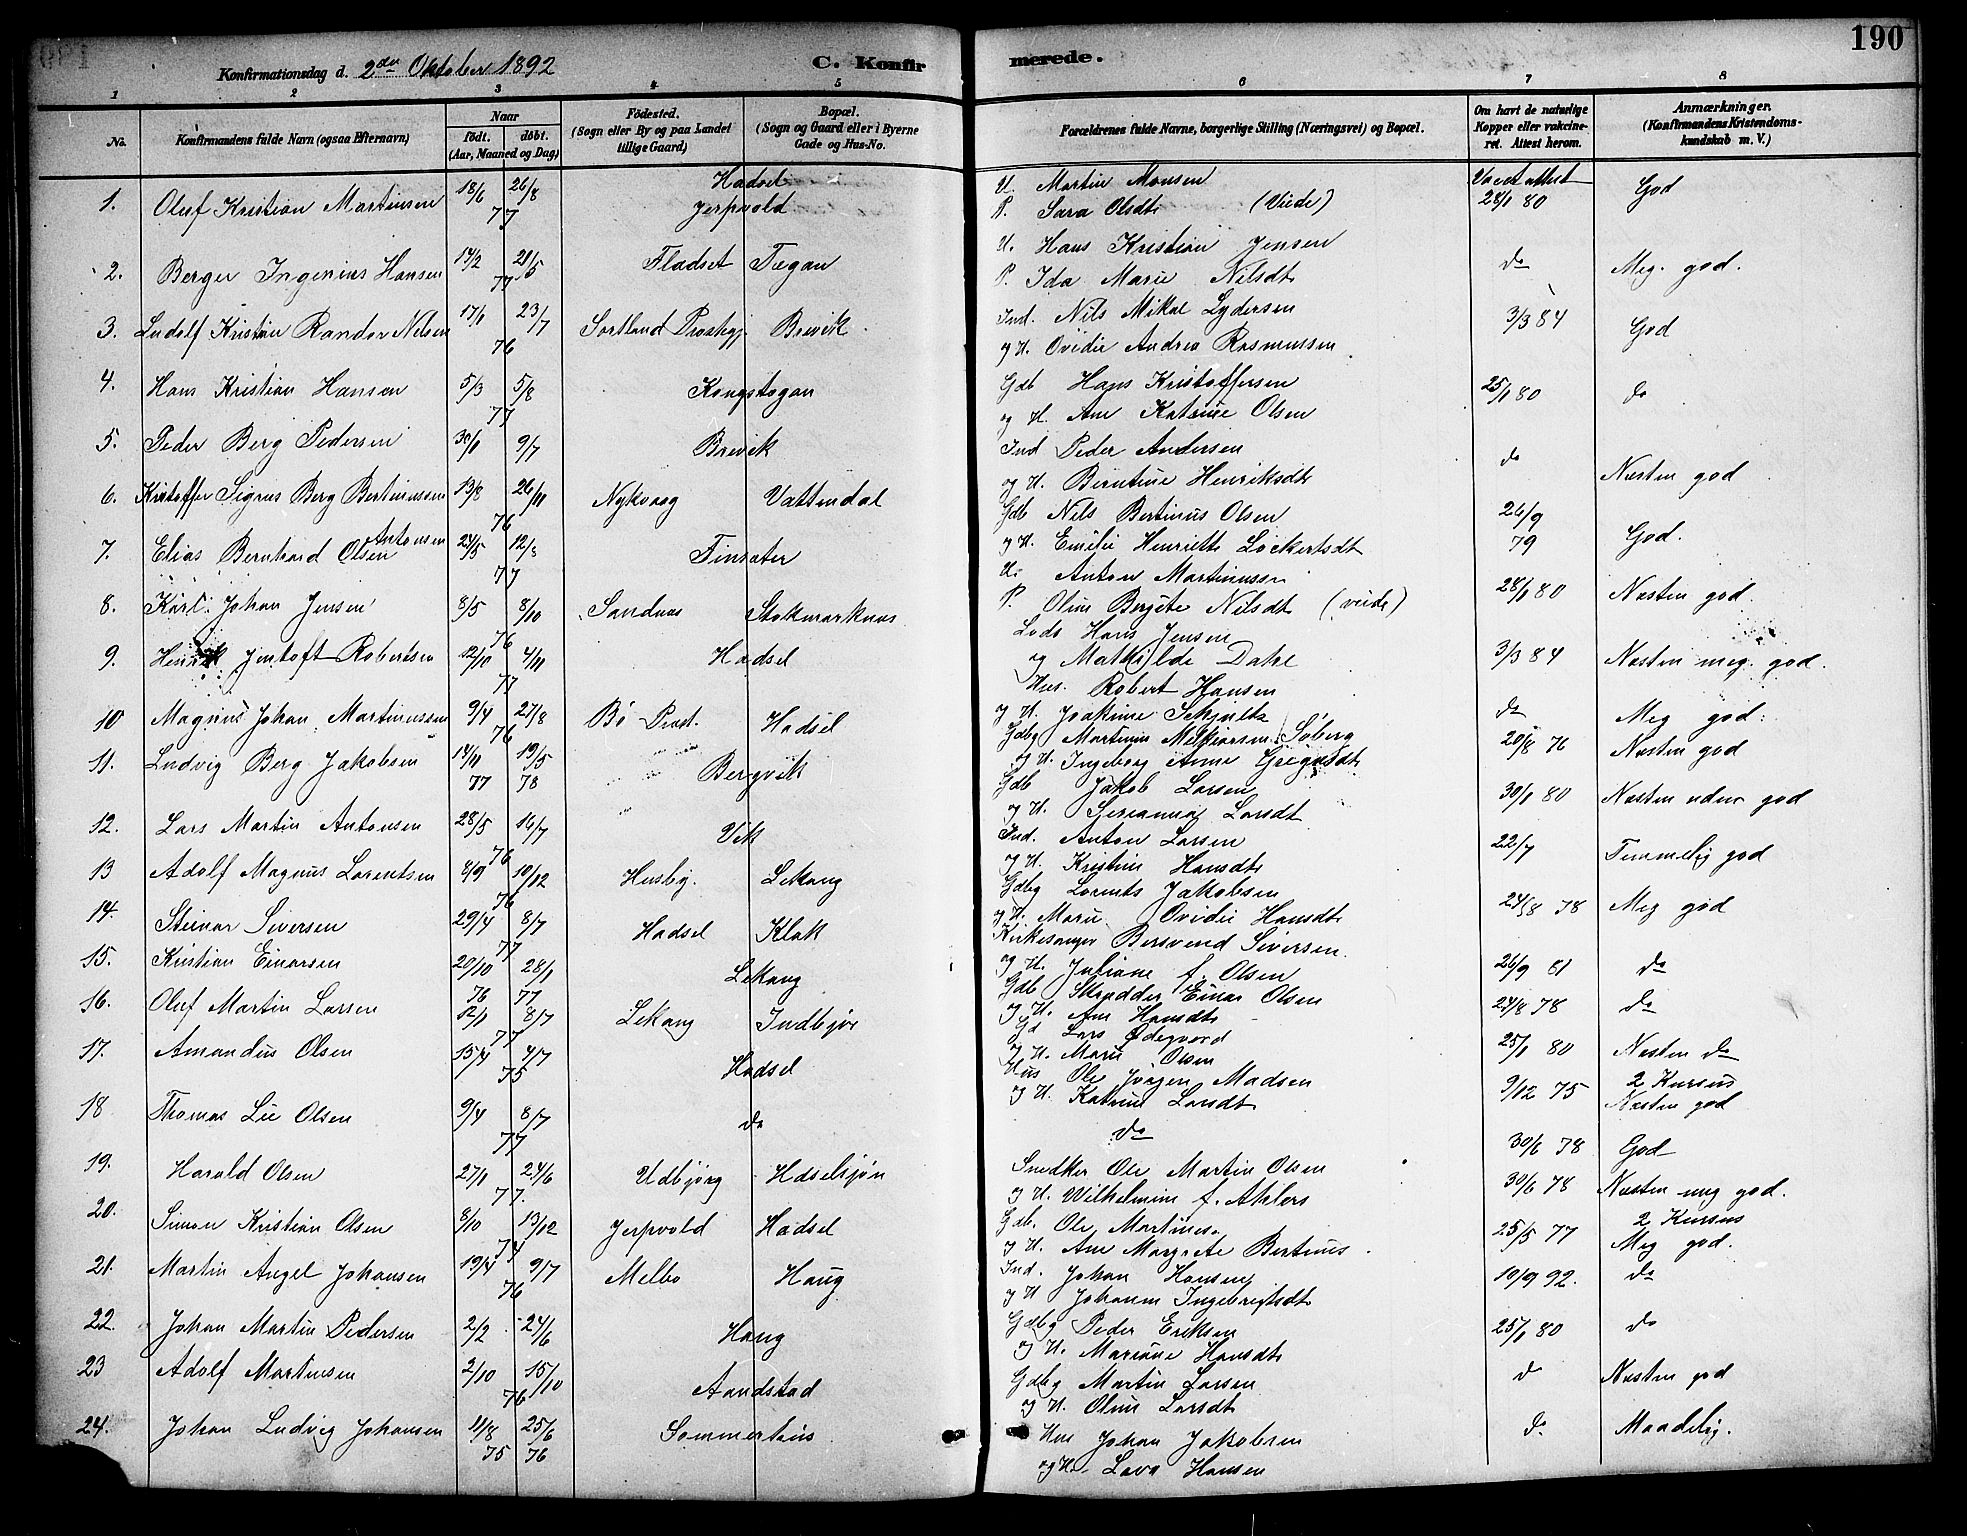 190
Konfirmationsdag d. 2den Oktober 1892
C. Konfirmerede.
1 2 3 4 5 6 7 8
No. Konfirmandens fulde Navn (ogsaa Efternavn) Naar født. døbt. (Aar, Maaned og Dag) Fødested. (Sogn eller By og paa Landet tillige Gaard) Bopæl. (Sogn og Gaard eller i Byerne Gade og Hus-No.) Forældrenes fulde Navne, borgerlige Stilling (Næringsvei) og Bopæl. Om havt de naturlige Kopper eller vakcineret. Attest herom. Anmærkninger. (Konfirmandens Kristendomskundskab m. V.)
1. Oluf Kristian Martinsen 18/6 26/8 77 Hadsel Jerpvold U. Martin Monsen 28/1 80 God
P. Sara Olsdt
2. Berger Ingenius Hansen 14/2 21/5 77 Fladset Tægan U. Hans Kristian Jensen do Meg. god.
P. Ida Marie Nilsdt
3. Ludolf Kristian Randor Nilsen 17/1 23/7 76 Sortland Brevik Ind. Nils Mikal Lydersen 3/3 84 God
og H. Ovidie Andrea Rasmussen
4. Hans Kristian Hansen 5/3 5/8 77 Kongstogan Gdb Hans Kristoffersen 25/1 80 do
og H. Ane Katrine Olsen
5. Peder Berg Pedersen 30/1 9/7 Brevik Ind Peder Andersen do Næsten god
og H. Berntine Henriksdt
6. Kristoffer Sigvus Berg Bertinussen 13/8 26/11 76 Nykvaag Vattendal Gdb Nils Bertinus Olsen 26/9 79 God.
og H. Emilie Henriette Lockertsdt
7. Elias Bernhard Olsen Antonsen 24/5 12/8 77 Finsæter U. Anton Martinussen 28/1 80 Næsten god.
P. Oline Bergite Nilsdt
8. Karl Johan Jensen 8/5 8/10 76 Sandnes Stokmarknes Lods Hans Jensen 3/3 84 Næsten meg. god.
og Mathilde Dahl
9. Henrik Jentoft Robertsen 12/10 4/11 77 Hadsel Hus. Robert Hansen do Meg god.
og H. Joakime Schjultz
10 Magnus Johan Martinussen 9/4 27/8 76 Bø Præst. Hadsel Gdbg Martinus Melkiorsen Søberg 20/8 76 Næsten god
og H. Ingeborg Anne
11. Ludvig Berg Jakobsen 14/11 77 19/5 78 Bergvik Gdb Jakob Larsen 30/1 80 Næsten uden god
og H. Larsdt
12. Lars Martin Antonsen 28/5 16/7 76 Vik Ind. Anton Larsen 22/7 Temmelig god
og H. Kristine Hansdt
13 Adolf Magnus Lorentsen 4/9 10/12 76 Husby. Lekang Gdbg Lorents Jakobsen 24/8 78 Meg god
og H. Marie Ovidie Hansdt
14. Steinar Siversen 29/4 8/7 77 Hadsel Klak Kirkesanger Bersvend Siversen 26/9 81 do
og H. Juliane f. Olsen
15. Kristian Einarsen 20/10 76 28/1 77 Lekang Gdb Skrædder Einar Olsen 24/8 78 do
og H. Ane Hansdt
16. Oluf Martin Larsen 12/1 8/7 77 Lekang Indbjør Gd Lars Ødegaard 25/1 80 Næsten do
og H. Marie Olsen
17. Amandus Olsen 15/4 4/7 75 Hadsel Hus Ole Jørgen Madsen 9/12 75 2 Kursus Næsten god
og H. Katrine Larsdt
18 Thomas Lie Olsen 9/4 8/7 77 do do 30/6 78 God
19. Harald Olsen 27/1 24/6 77. Udbjørg Hadselsjøn Snedker Ole Martin Olsen 30/6 78 Næsten meg god.
og H. Wilhelmine f. Ahlers
20. Simon Kristian Olsen 8/10 13/12 74 Jerpvold Hadsel Gdb. Ole Martinus. 25/5 77 2 Kursus Meg god.
og H. Ane Margrete Bertinus
21. Martin Angel Johansen 19/4 9/7 76 Melbo Haug Ind. Johan Hansen 10/9 92. do
og H Johanna Ingebrigtsdt
22. Johan Martin Pedersen 2/2 24/6 Haug Gdbg Peder Eriksen 25/1 80 do
og H. Mariane Hansdt
23 Adolf Martinsen 2/10 15/10 76 Aandstad Gdbg Martin Larsen do Næsten god
og H. Oline Larsdt
24. Johan Ludvig Johansen 11/8 75 25/6 76 Sommerhus Hus Johan Jakobsen do Maadelig.
og H. Lava Hansen